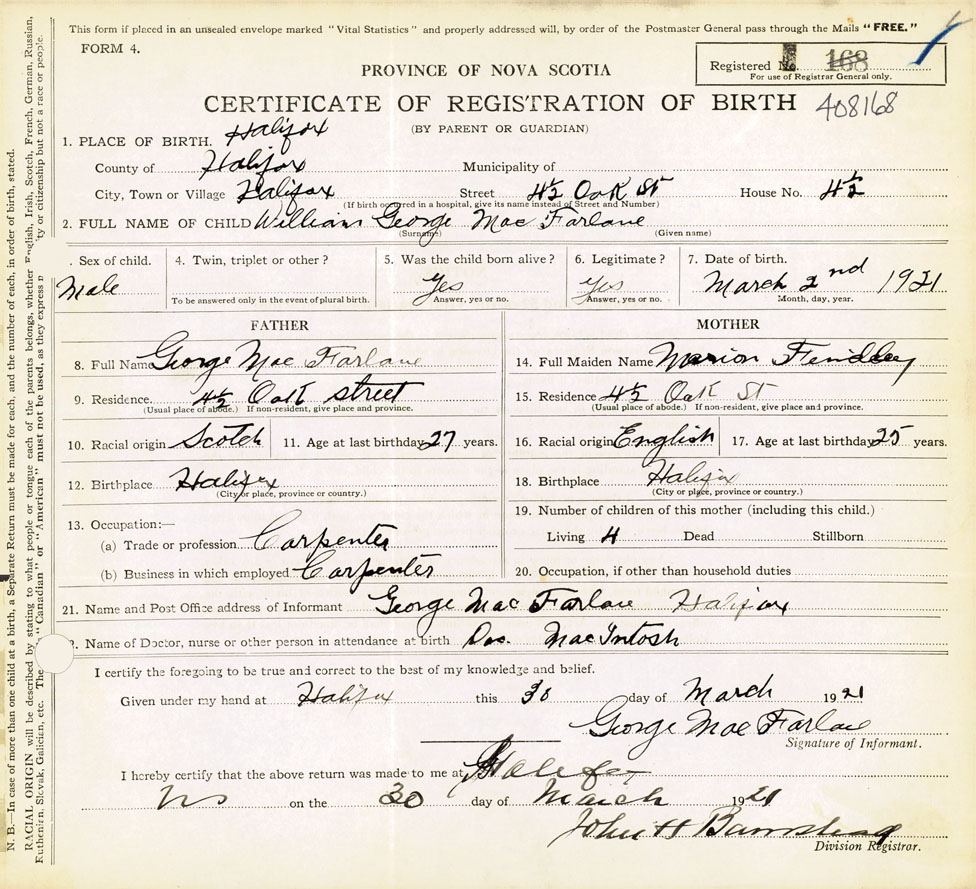 This form if placed in an unsealed envelope marked "Vital Statistics" and properly addressed will, by order of the Postmaster General pass through the Mails "FREE."
FORM 4.
Registered No. 168
For use of Registrar General only.
PROVINCE OF NOVA SCOTIA
CERTIFICATE OF REGISTRATION OF BIRTH 408168
(BY PARENT OR GUARDIAN)
1. PLACE OF BIRTH. Halifax
County of Halifax Municipality of
City, Town or Village Halifax Street 4½ Oak St House No. 4½
(If birth occurred in a hospital, give its name instead of Street and Number)
2. FULL NAME OF CHILD William George Mac Farlane
(Surname) (Given name)
. Sex of child. 4. Twin, triplet or other ? 5. Was the child born alive ? 6. Legitimate ? 7. Date of birth.
Male Yes Yes March 2nd 1921
To be answered only in the event of plural birth. Answer, yes or no. Answer, yes or no. Month, day, year.
FATHER MOTHER
8. Full Name George Mac Farlane 14. Full Maiden Name Marion
9. Residence 4½ Oak street 15. Residence 4½ Oak St
(Usual place of abode.) If non-resident, give place and province. (Usual place of abode.) If non-resident, give place and province.
10. Racial origin Scotch 11. Age at last birthday 27 years. 16. Racial origin English 17. Age at last birthday 25 years.
12. Birthplace Halifax 18. Birthplace Halifax
(City or place, province or country.) (City or place, province or country.)
13. Occupation:— 19. Number of children of this mother (including this child.)
(a) Trade or profession Carpenter Living 4 Dead Stillborn
(b) Business in which employed Carpenter 20. Occupation, if other than household duties
21. Name and Post Office address of Informant George Mac Farlane Halifax
. Name of Doctor, nurse or other person in attendance at birth Doc. MacIntosh
I certify the foregoing to be true and correct to the best of my knowledge and belief.
Given under my hand at Halifax this 30 day of March 1921
George Mac Farlane
Signature of Informant.
I hereby certify that the above return was made to me at Halifax
NS on the 30 day of March 1921
John H Barnstead
Division Registrar.
N. B.—In case of more than one child at a birth, a Separate Return must be made for each, and the number of each, in order of birth, stated.
RACIAL ORIGIN will be described by stating to what people or tongue each of the parents belongs, whether English, Irish, Scotch, French, German, Russian,
Ruthenian, Slovak, Galician, etc. "Canadian" or "American" must not be used, as they express citizenship but not a race or people.